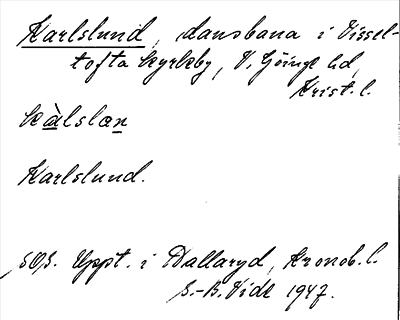 Karlslund, dansbana i Vissel-
tofta kyrkby, V. Göinge hd,
Krist. l.
kàlslæn
Karlslund.
SOJ. Uppt. i Hallaryd, Kronob. l.
S.-B. Vide 1947.